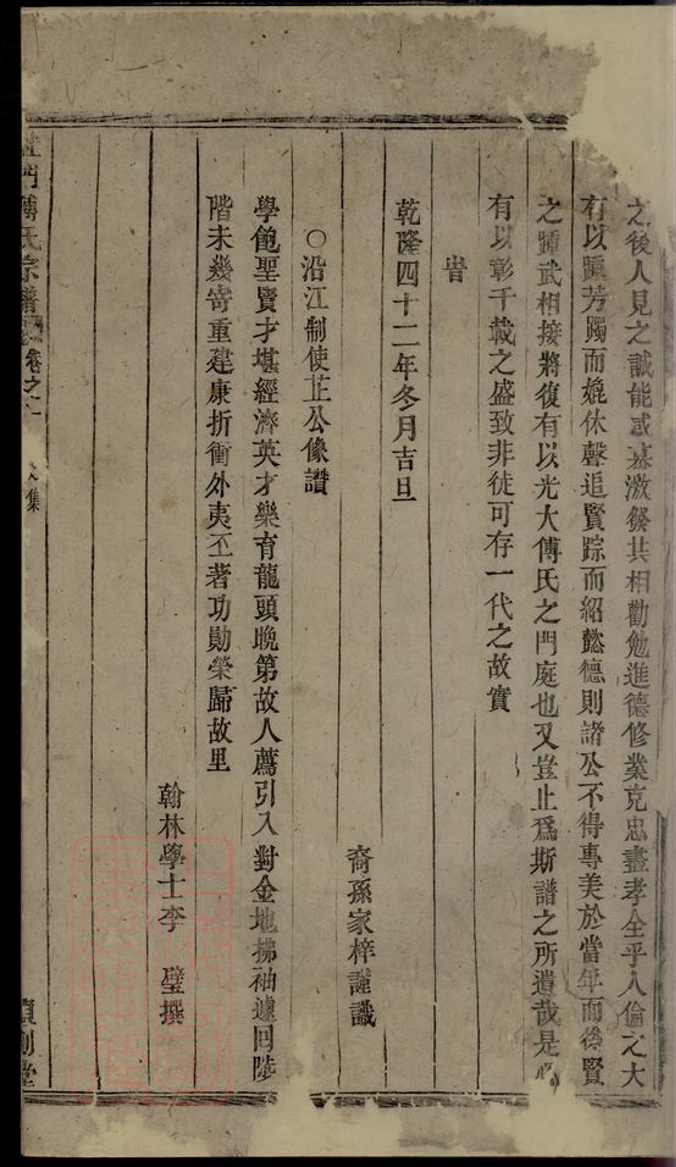 之後人見之誠能感慕激發共相勸勉進德修業克忠盡孝全乎人倫之大
有以踵芳躅而媲休聲追賢踪而紹懿德則諸公不得專美於當年而後賢
之踵武相接將復有以光大傅氏之門庭也又豈止爲斯譜之所遺哉是
有以彰千載之盛致非徒可存一代之故實
旹
乾隆四十二年冬月吉旦
裔孫家梓謹識
○沿江制使芷公像讚
學飽聖賢才堪經濟英才樂育龍頭晚第故人薦引入對金地拂袖遽囘陟
階未幾寄重建康折衝外夷丕著功勛榮歸故里
翰林學士李　璧撰
門傅氏宗譜 卷之 集